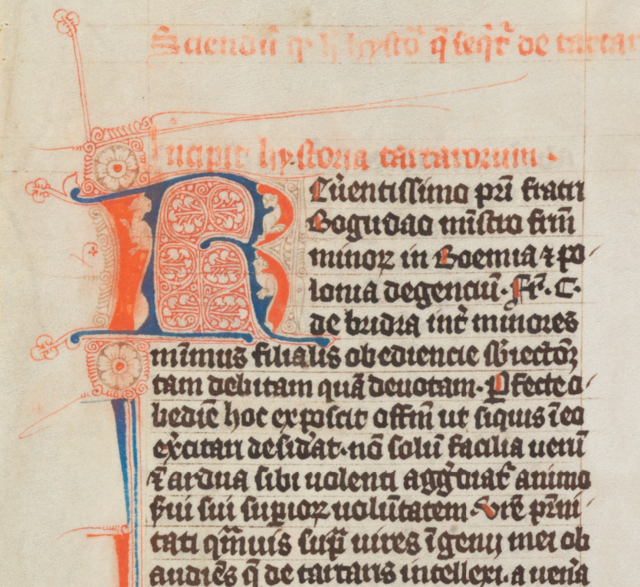 Sciendū q̄ h̄ hystō q̄ seqr̄ de tartar
Incipit hystoria tartarorum·
Reuerentissimo pr̄i fratri
Bogudao mīstro frm̄
minoꝝ in Boemia ⁊ po
lonia degenciū· Fr̄· C·
de bridia int̄ minores
minimus filialis obediencie sb̄iectōꝫ
tam debitam quā deuotam· ꝑfecte o
bediē hoc exposcit offm̄ ut siquis ī eo
exc̄itari desid̄at· nō solū facilia uerū
⁊ ardua sibi uolenti agg̃diat̄ animo
sui suꝑioꝝ uolūtatem· Vr̄e pr̄ni
tati qm̄uis suꝑ uires īgenij mei ob
audiēs q̄ de tartaris intellexi, a uen̄a